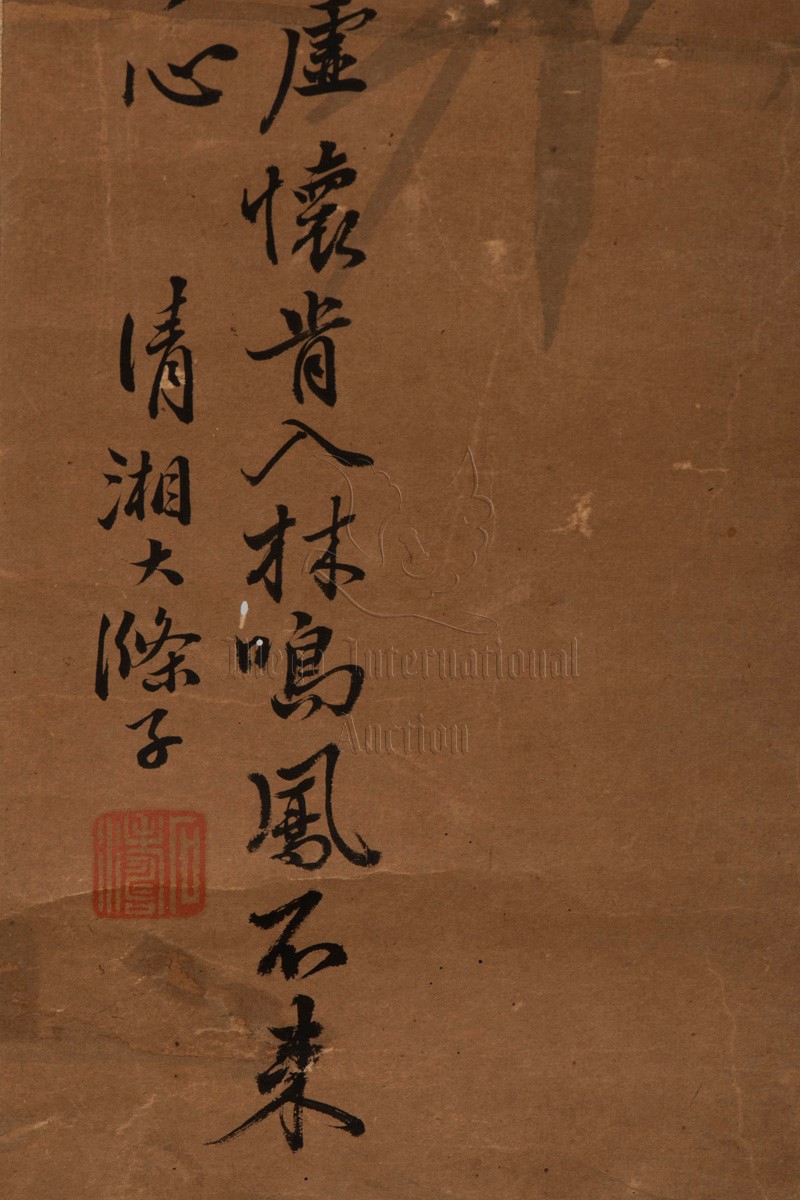 虛懷肯入林鳴鳳不來
心 清湘大滌子
International
Auction